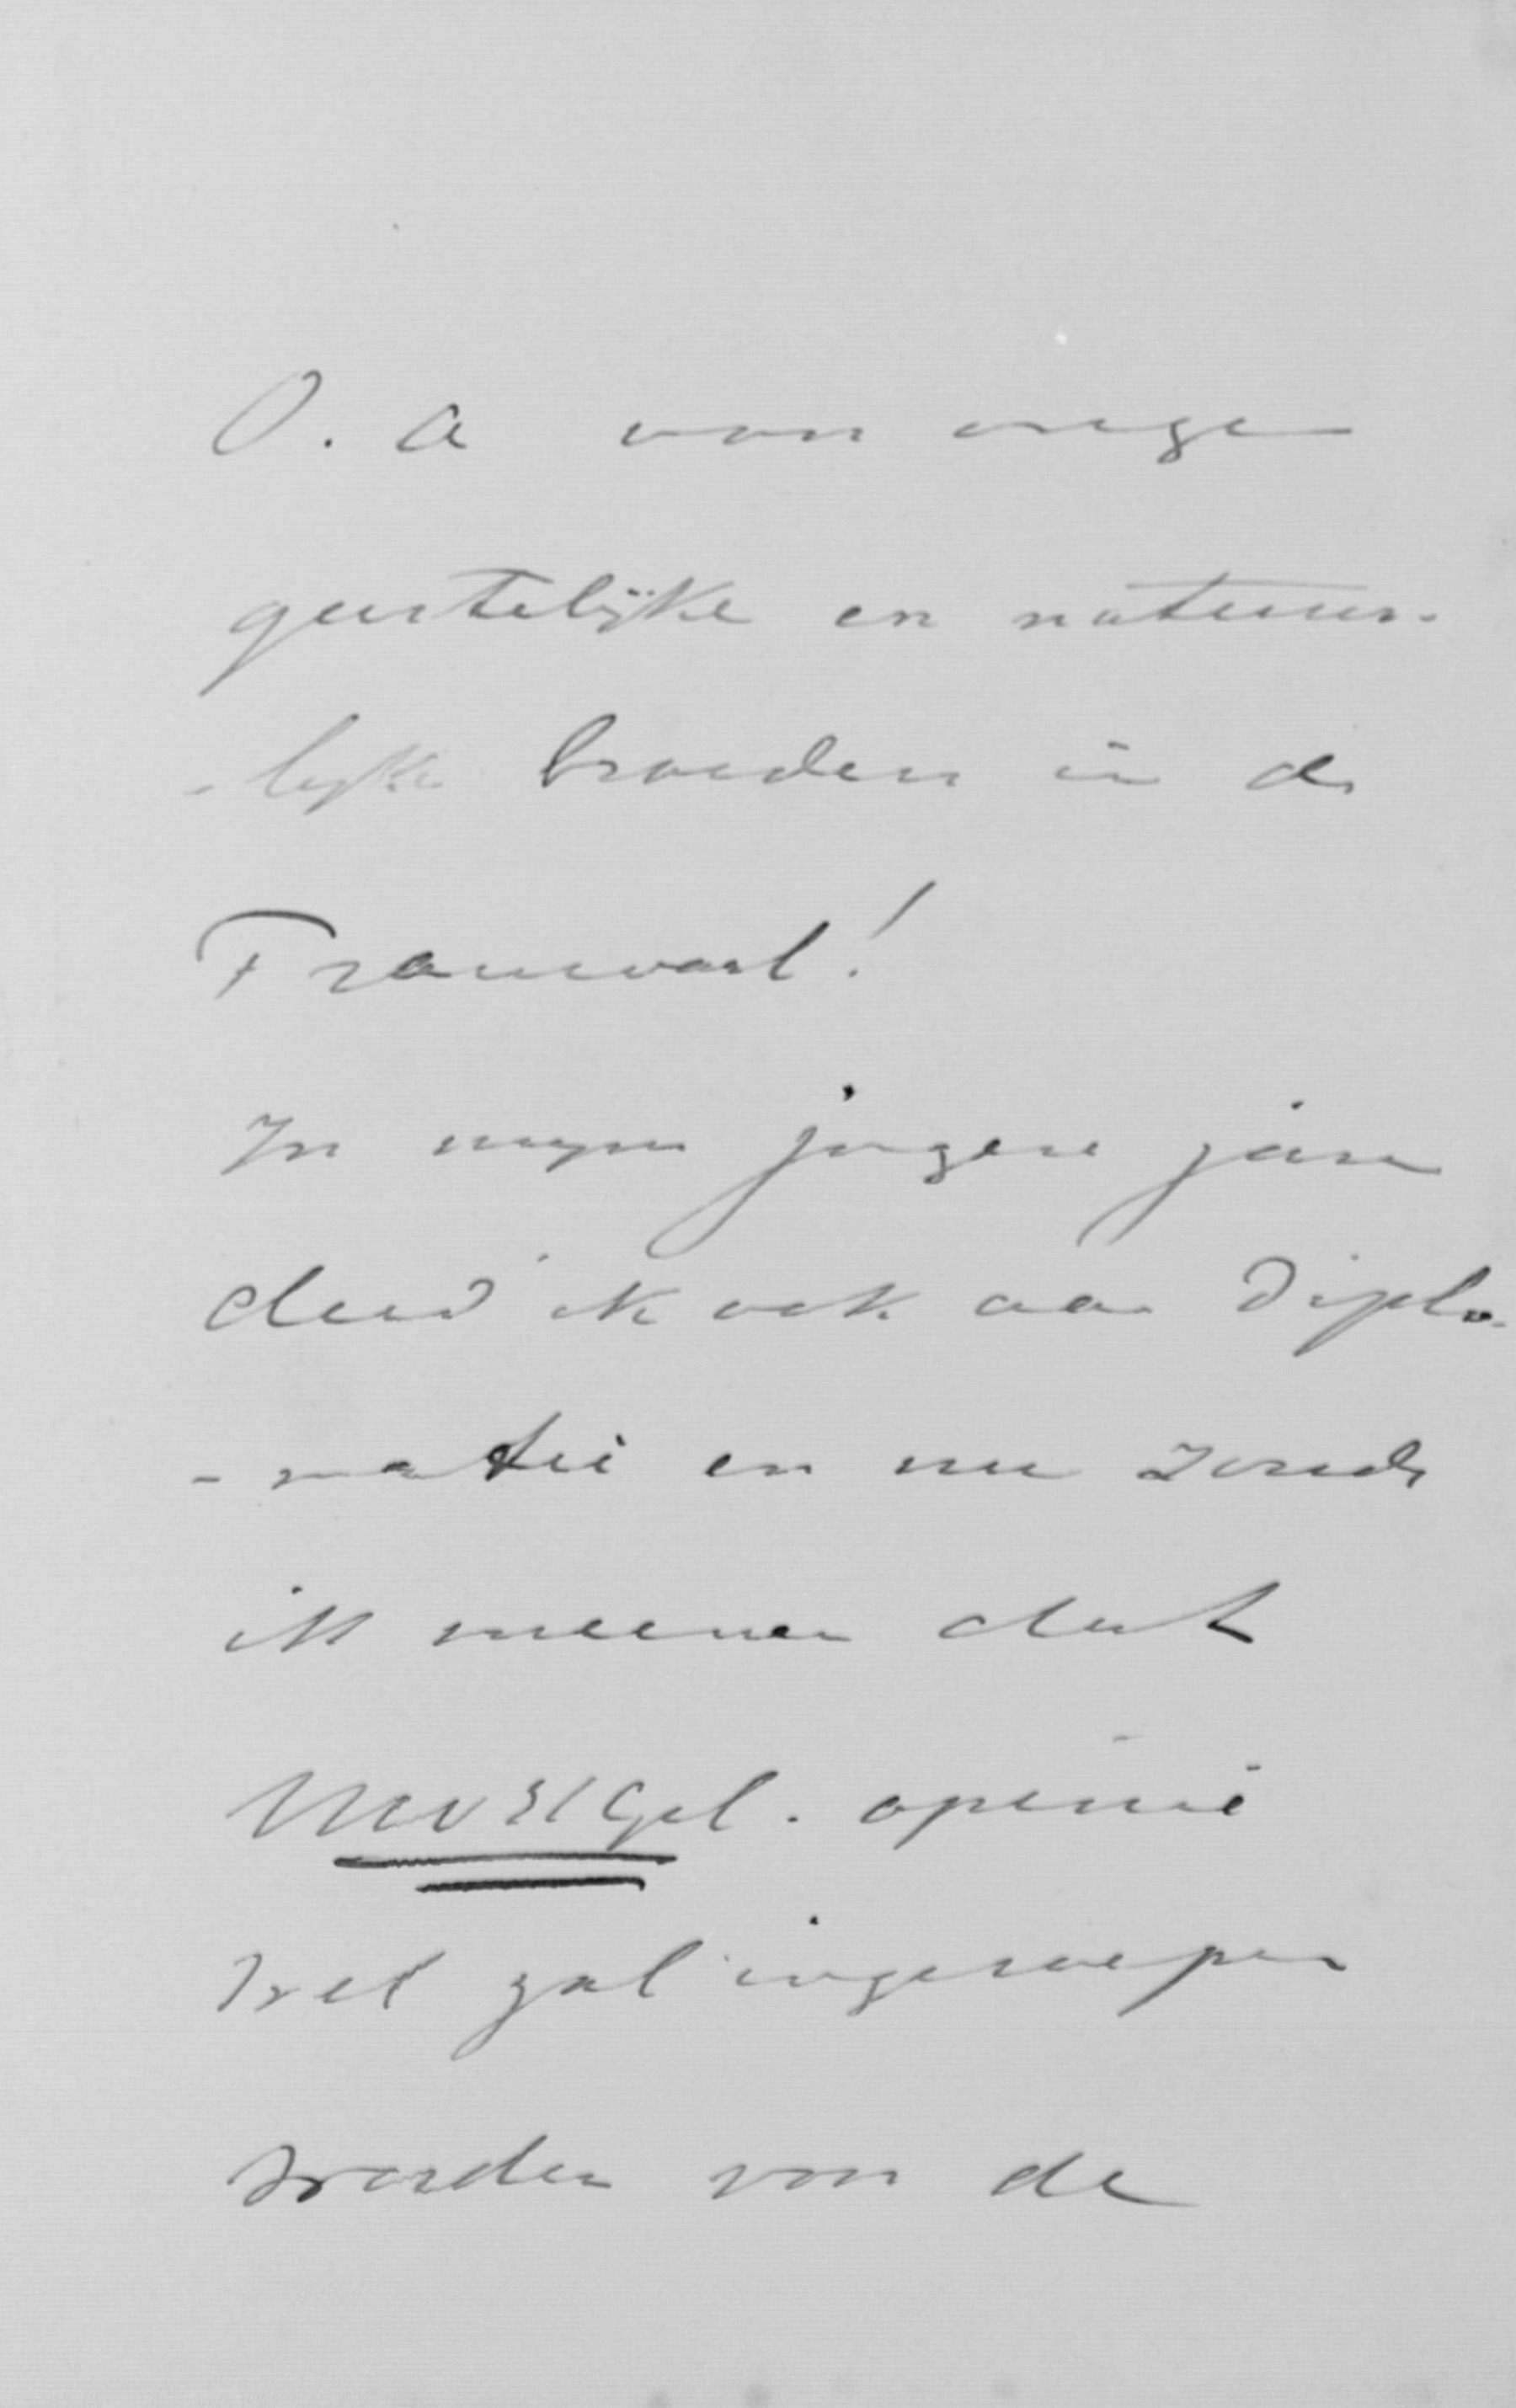 O. a van onze
geestelijke en natuur-
- lijke broeders in de
Transvaal!
In mijn jongere jaren
deed ik ook aan diplo-
- matie en nu zoude
ik meenen dat
opinie
wel zal ingeroepen
worden van de